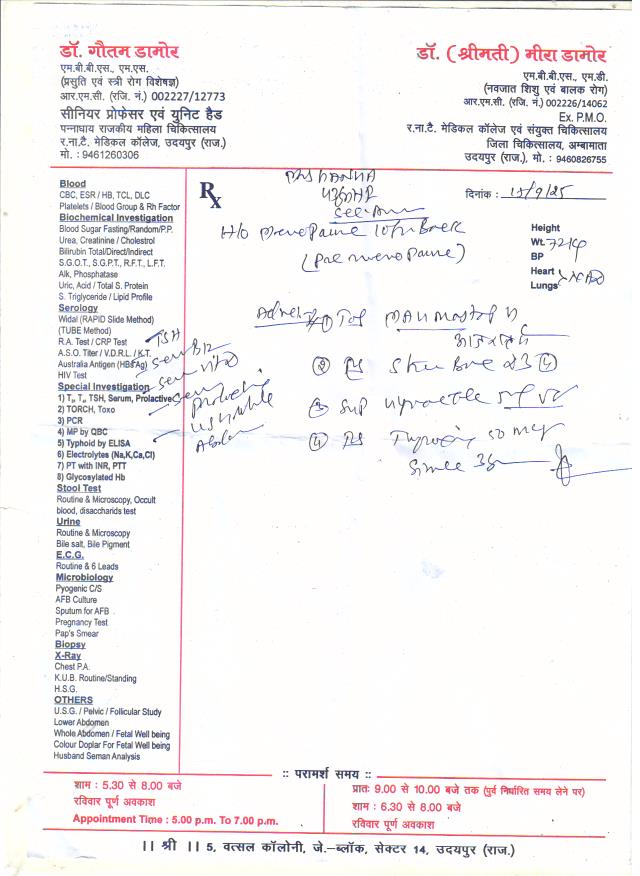 डॉ. गौतम डामोर
एम.बी.बी.एस., एम.एस.
(प्रसुति एवं स्त्री रोग विशेषज्ञ)
आर.एम.सी. (रजि. नं.) 002227/12773
सीनियर प्रोफेसर एवं युनिट हैड
पन्नाधाय राजकीय महिला चिकित्सालय
र.ना.टै. मेडिकल कॉलेज, उदयपुर (राज.)
मो. : 9461260306
डॉ. (श्रीमती) मीरा डामोर
एम.बी.बी.एस., एम.डी.
(नवजात शिशु एवं बालक रोग)
आर.एम.सी. (रजि. नं.) 002226/14062
Ex. P.M.O.
र.ना.टै. मेडिकल कॉलेज एवं संयुक्त चिकित्सालय
जिला चिकित्सालय, अम्बामाता
उदयपुर (राज.), मो. : 9460826755
Blood
CBC, ESR / HB, TCL, DLC
Platelets / Blood Group & Rh Factor
Biochemical Investigation
Blood Sugar Fasting/Random/P.P.
Urea, Creatinine / Cholestrol
Bilirubin Total/Direct/Indirect
S.G.O.T., S.G.P.T., R.F.T., L.F.T.
Alk, Phosphatase
Uric, Acid / Total S. Protein
S. Triglyceride / Lipid Profile
Serology
Widal (RAPID Slide Method)
(TUBE Method)
R.A. Test / CRP Test
A.S.O. Titer / V.D.R.L. / K.T.
Australia Antigen (HBsAg)
HIV Test
Special Investigation
1) T₃, T₄, TSH, Serum, Prolactive
2) TORCH, Toxo
3) PCR
4) MP by QBC
5) Typhoid by ELISA
6) Electrolytes (Na,K,Ca,Cl)
7) PT with INR, PTT
8) Glycosylated Hb
Stool Test
Routine & Microscopy, Occult
blood, disaccharids test
Urine
Routine & Microscopy
Bile salt, Bile Pigment
E.C.G.
Routine & 6 Leads
Microbiology
Pyogenic C/S
AFB Culture
Sputum for AFB
Pregnancy Test
Pap's Smear
Biopsy
X-Ray
Chest P.A.
K.U.B. Routine/Standing
H.S.G.
OTHERS
U.S.G. / Pelvic / Follicular Study
Lower Abdomen
Whole Abdomen / Fetal Well being
Colour Doplar For Fetal Well being
Husband Seman Analysis
TSH
B12
Rx
दिनांक : 15/9/25
H/o
Height
Wt. 72
BP
Heart
Lungs
① Tab
②
③
④ 50 mcg
Since
:: परामर्श समय ::
शाम : 5.30 से 8.00 बजे
रविवार पूर्ण अवकाश
Appointment Time : 5.00 p.m. To 7.00 p.m.
प्रातः 9.00 से 10.00 बजे तक (पुर्व निर्धारित समय लेने पर)
शाम : 6.30 से 8.00 बजे
रविवार पूर्ण अवकाश
।। श्री ।। 5, वत्सल कॉलोनी, जे.–ब्लॉक, सेक्टर 14, उदयपुर (राज.)